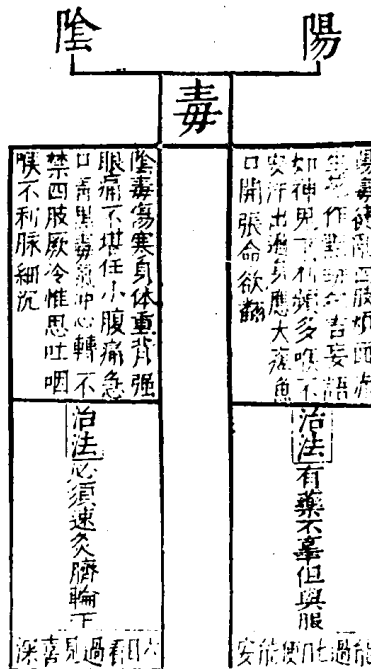 陽
陰
毒
陽毒健亂四肢煩面赤
生花作點斑狂言妄語
如神鬼下利頻多喉不
安汗出遍身應大瘥魚
口開張命欲翻
治法有藥不辜但與服
能過七日便能安
陰毒傷寒身体重背强
眼痛不堪任小腹痛急
口青黑毒氣冲心轉不
禁四肢厥冷惟思吐咽
喉不利脉細沉
治法必須速灸臍輪下
六日看過見喜深